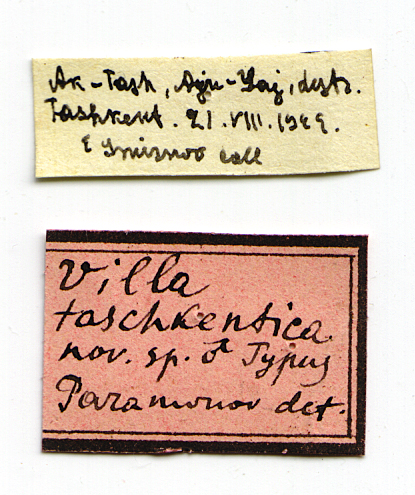 Ak-Tash, distr.
Tashkent. 21.VIII.
E Smirnov coll
Villa
taschkentica
nov. sp. ♂ Typus
Paramonov det.